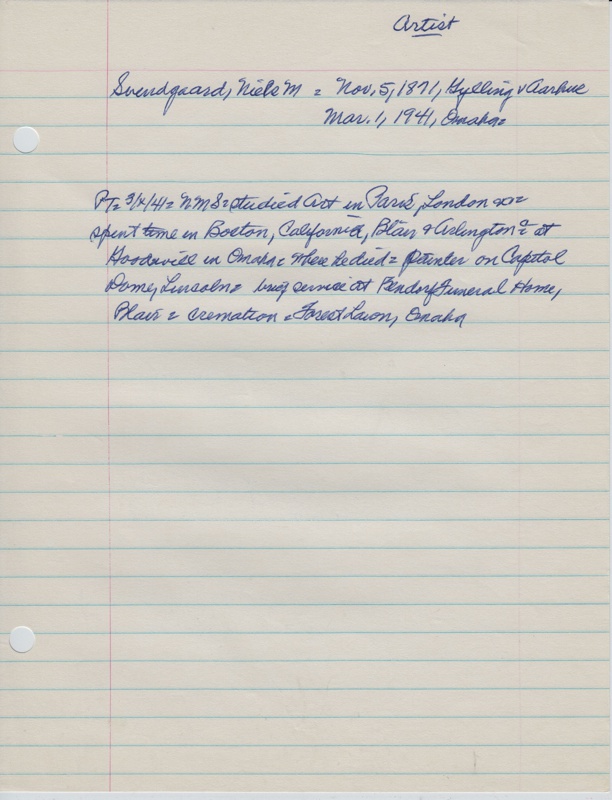 Artist
Svendgaard, Niels M = Nov. 5, 1871, Hylling v Aarhus
Mar. 1, 1941, Omaha=
PT= 3/4/41= NMS= studied Art in Paris, London
spent time in Boston, California, Blair & Arlington = at
Goodwill in Omaha = where he died = painter on Capitol
Dome, Lincoln = service at Bendorf Funeral Home,
Blair = cremation = Forest Lawn, Omaha